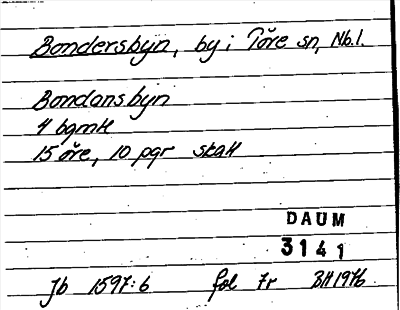 Bondersbyn, by i Töre sn, Nb.l.
Bondansbyn
4 bgmH
15 öre, 10 pgr skaH
DAUM
3141
Jb 1597:6 fol 7r BH 1976